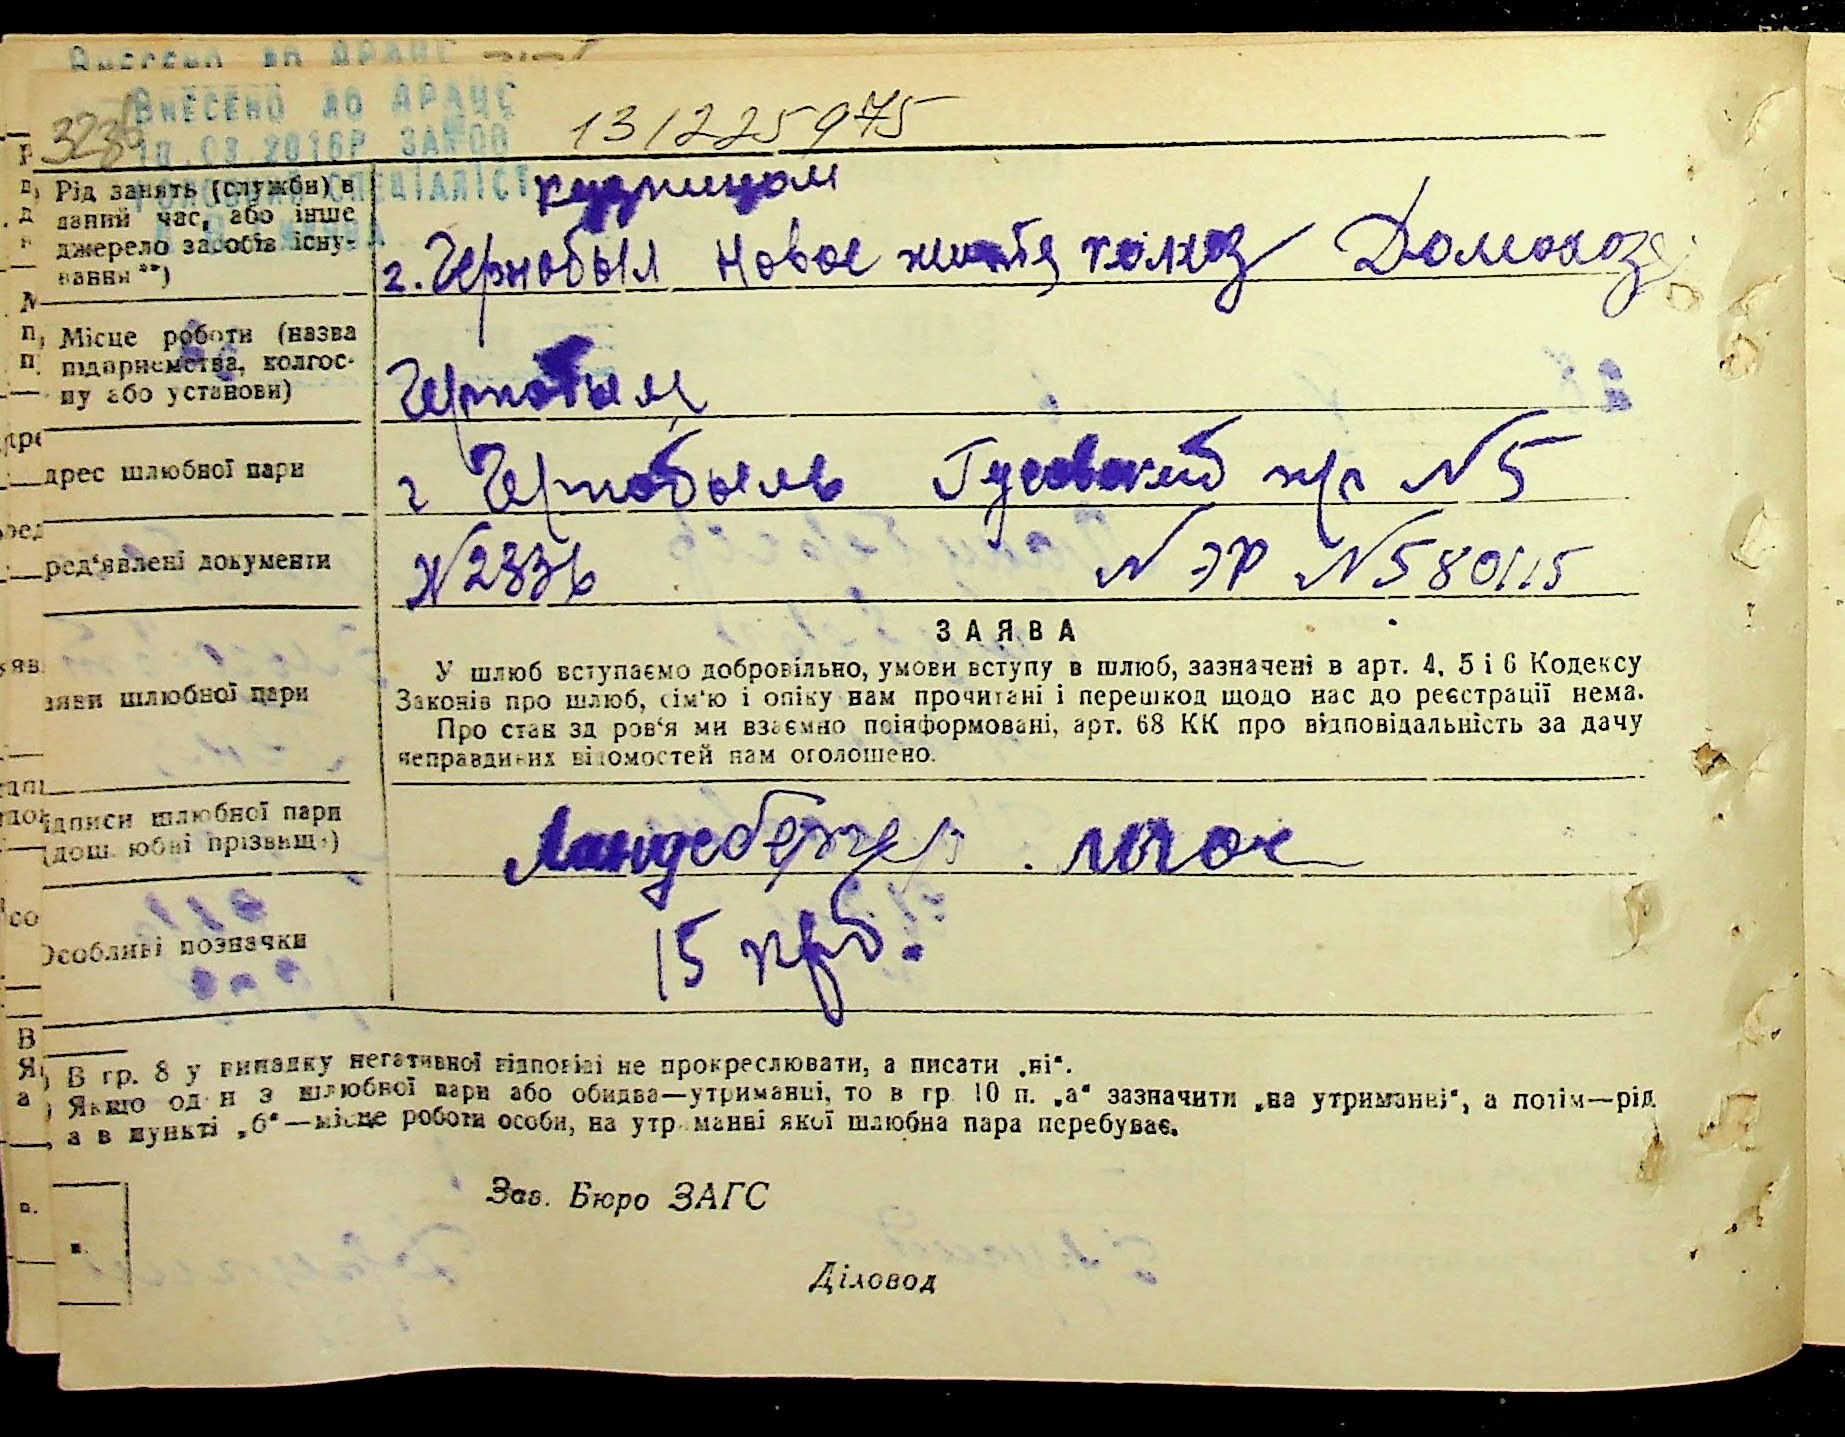 Внесено до ДРАЦС
Внесено до ДРАЦС
323
131225975
18.03.2016р ЗАМ 00
Рід занять (служби) в
даний час, або інше
джерело засобів існу-
вання **)
г. Чернобыл Новое житя колхоз Домохоз
Місце роботи (назва
підприємства, колгос-
пу або установи)
Чернобыл
дрес шлюбної пари
г Чернобыль Гусовский пр №5
ред'явлені документи
№2336 № ЭР №580115
ЗАЯВА
У шлюб вступаємо добровільно, умови вступу в шлюб, зазначені в арт. 4, 5 і 6 Кодексу
Законів про шлюб, сім'ю і опіку нам прочитані і перешкод щодо нас до реєстрації нема.
Про стан здоров'я ми взаємно поінформовані, арт. 68 КК про відповідальність за дачу
неправдивих відомостей нам оголошено.
заяви шлюбної пари
ідписи шлюбної пари
(дошлюбні прізвища)
15 крб.
Особливі позначки
В гр. 8 у випадку негативної відповіді не прокреслювати, а писати „ні“.
Якщо один з шлюбної пари або обидва—утриманці, то в гр. 10 п. „а“ зазначити „на утриманні“, а потім—рід
а в пункті „б“—місце роботи особи, на утриманні якої шлюбна пара перебуває.
Зав. Бюро ЗАГС
Діловод